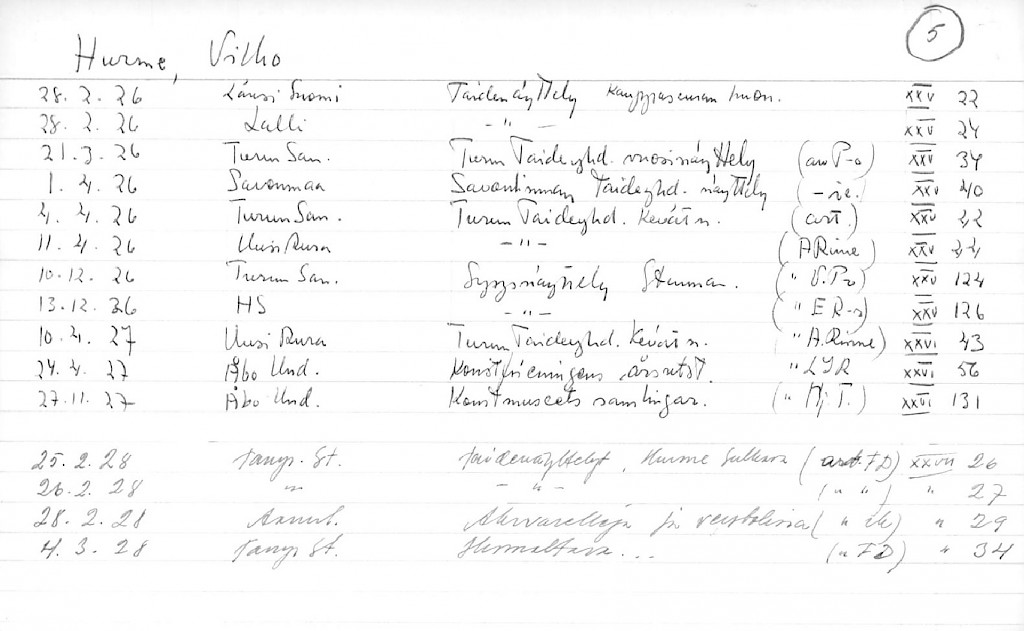 5
Hurme, Vilho
28. 2. 26 Länsi Suomi Taidenäyttely Kauppaseuran huon. XXV 22
28. 2. 26 Lalli –"– XXV 24
21. 3. 26 Turun San. Turun Taideyhd. vuosinäyttely (aw P-o) XXV 34
1. 4. 26 Savonmaa Savonlinnan Taideyhd. näyttely (-ie.) XXV 40
4. 4. 26 Turun San. Turun Taideyhd. Kevätn. (art.) XXV 42
11. 4. 26 Uusi Aura –"– (A Rime) XXV 44
10. 12. 26 Turun San. Syysnäyttely Stenman. (" V.Pr) XXV 124
13. 12. 26 HS –"– (" E R-r) XXV 126
10. 4. 27 Uusi Aura Turun Taideyhd. Kevätn. " A. Rinne) XXVI 43
24. 4. 27 Åbo Und. Konstföreningens årsutst. " LYR XXVI 56
27. 11. 27 Åbo Und. Konstmuseets samlingar. (" Hj. T.) XXVI 131
25. 2. 28 Tamp. St. Taidenäyttelyt, Hurme (art. FD) XXVII 26
26. 2. 28 –"– –"– (" ") " 27
28. 2. 28 Aamul. Akvarelleja ja (" ) " 29
4. 3. 28 Tamp St. ... (" FD) " 34